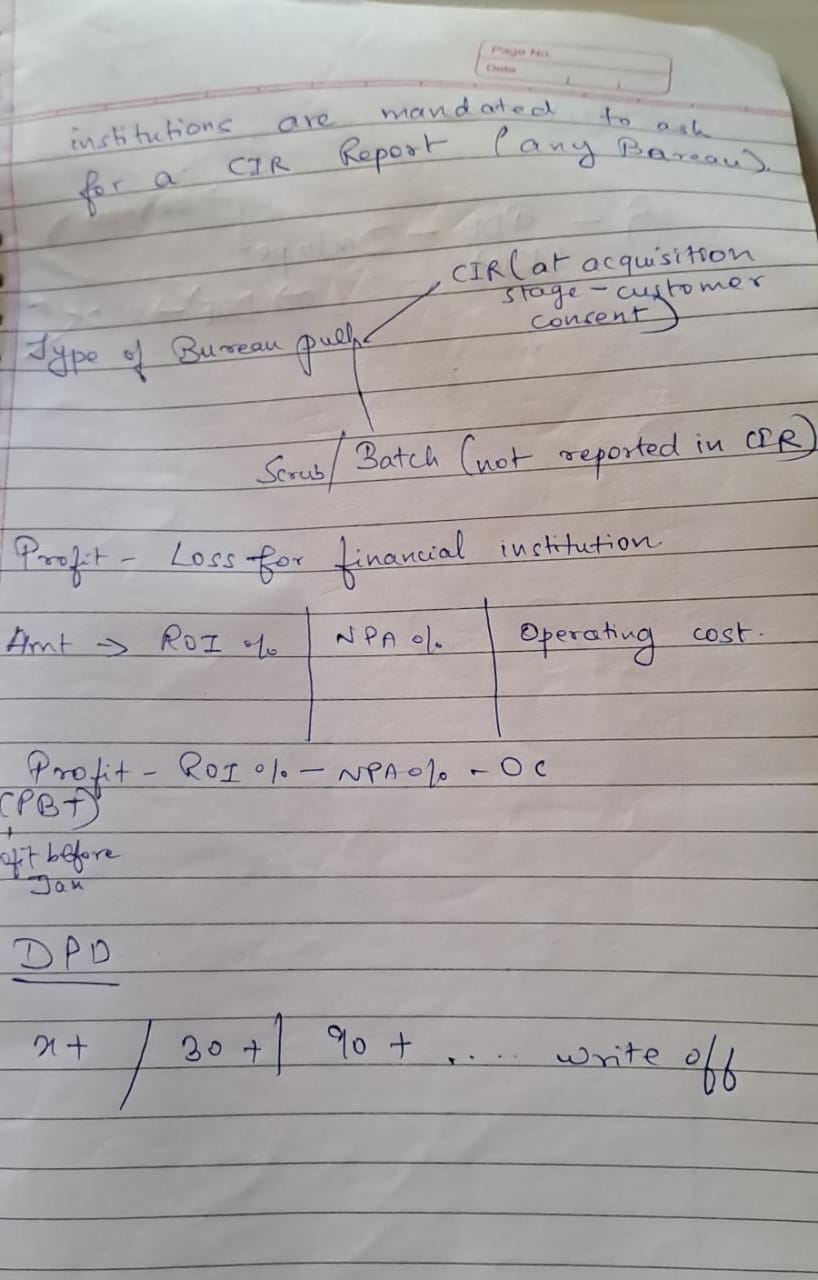 Page No.
Date
institutions are mandated to ask
for a CIR Report (any Bureau).
CIR (at acquisition
stage - customer
consent)
Type of Bureau pull
Scrub/Batch (not reported in CIR)
Profit - Loss for financial institution
Amt → ROI % | NPA % | Operating cost.
Profit - ROI % - NPA % - OC
(PBT)
↓
oft before
Tax
DPD
x+ / 30+ | 90+ .... write off